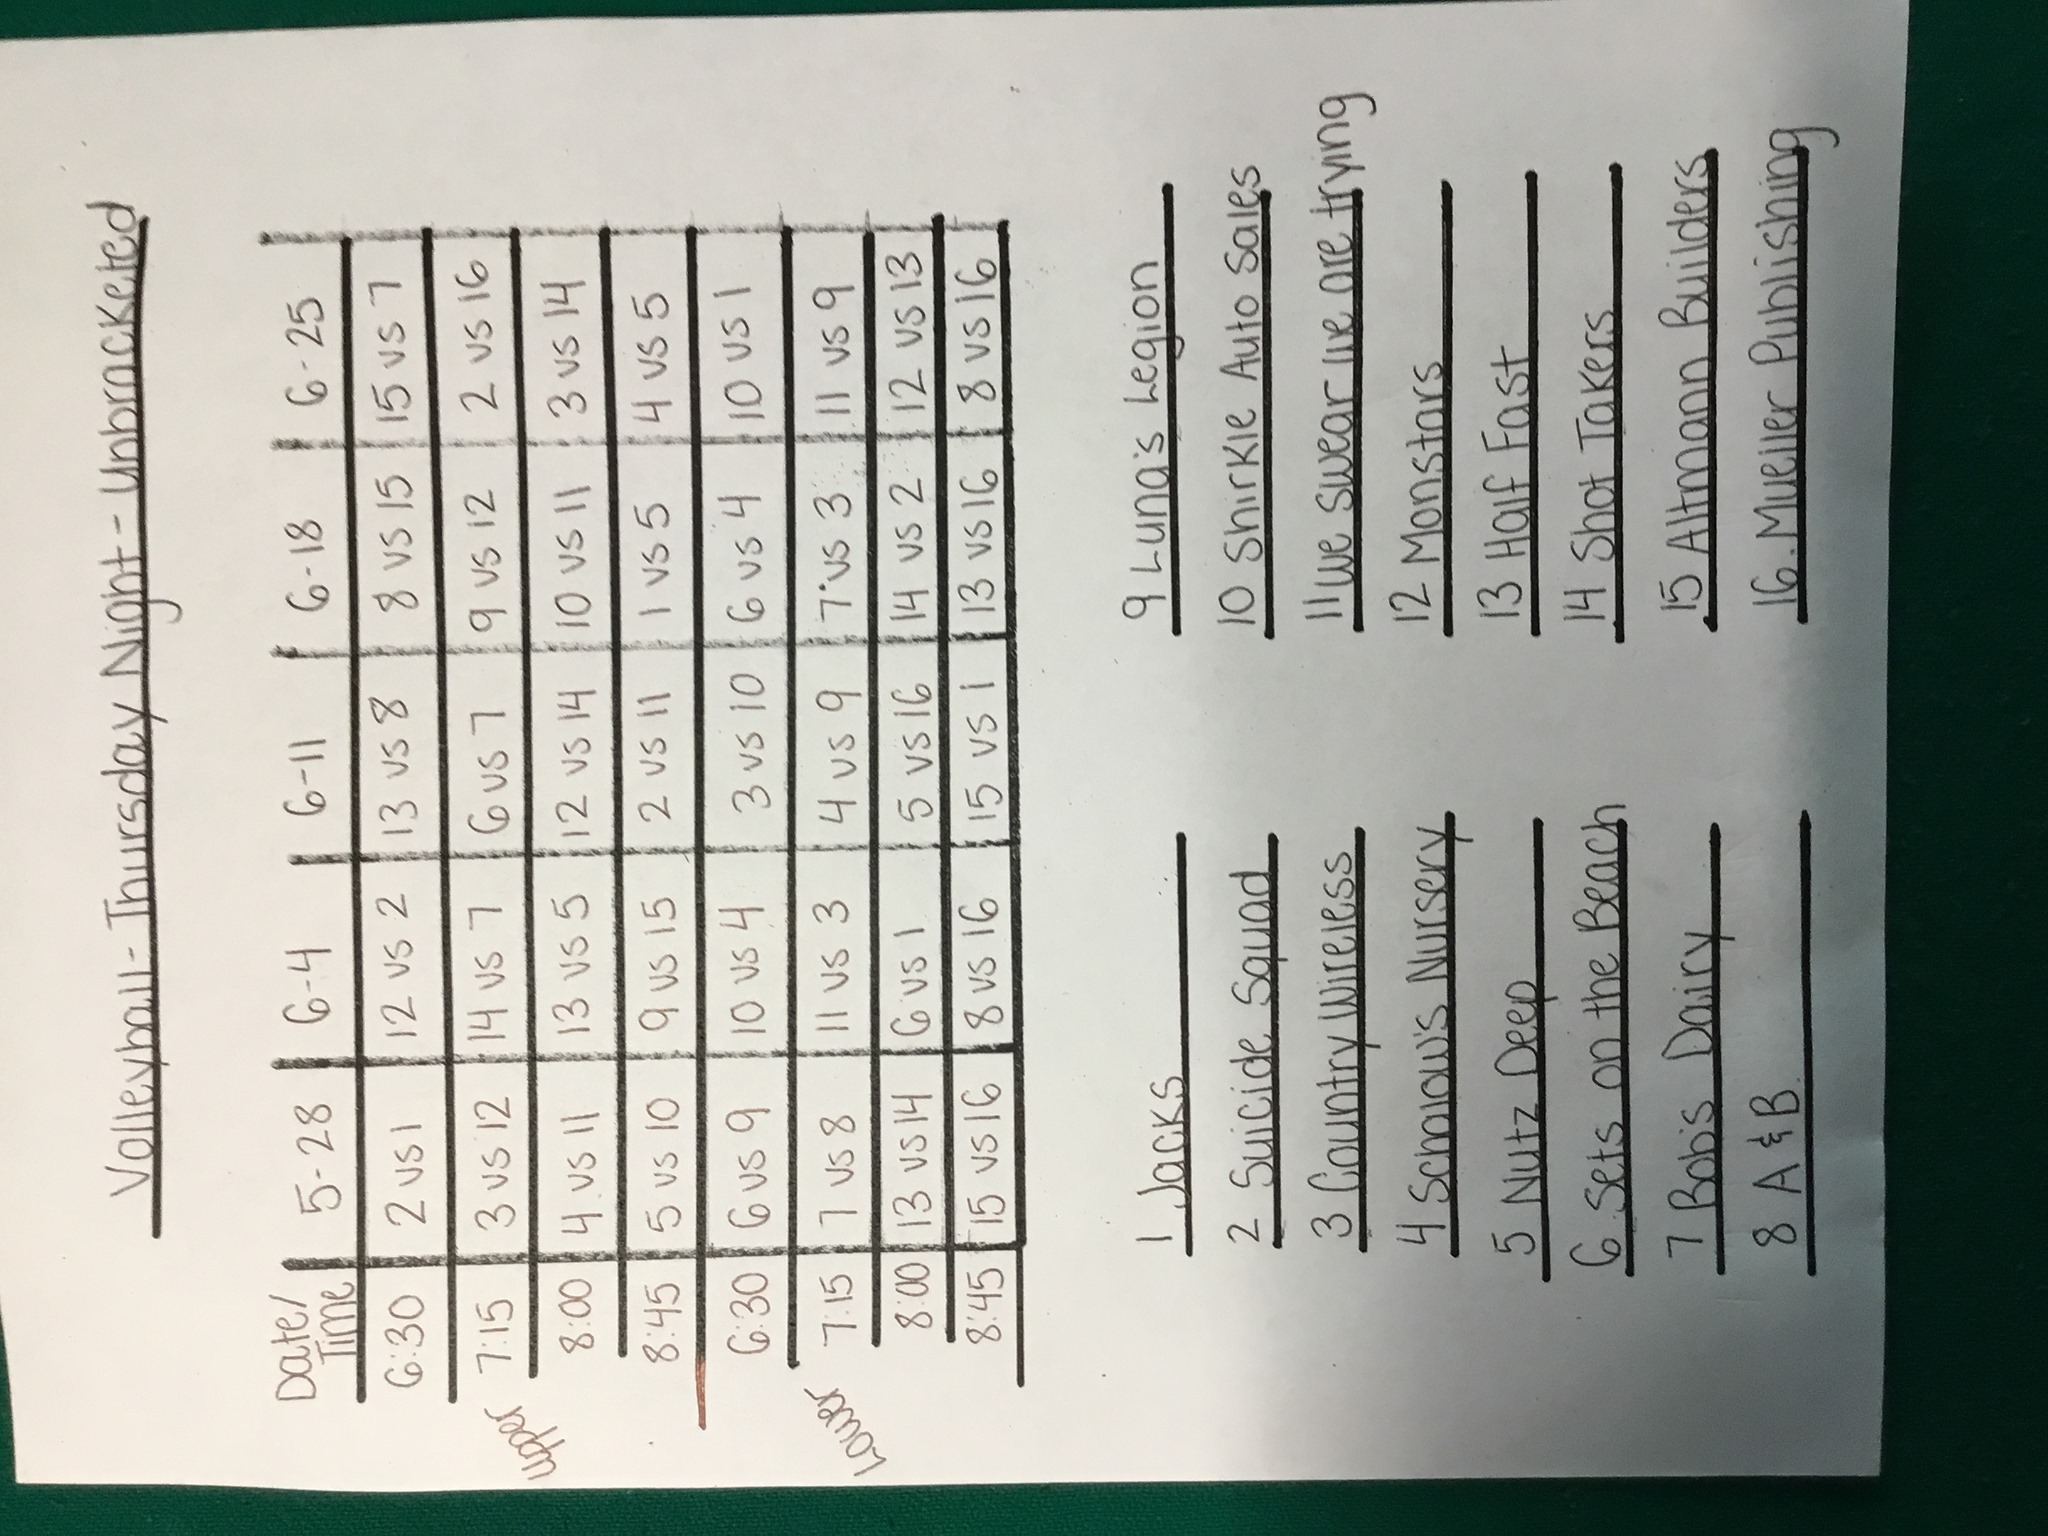 Volleyball - Thursday Night - Unbracketed
Date/Time 5-28 6-4 6-11 6-18 6-25
upper
6:30 2 vs 1 12 vs 2 13 vs 8 8 vs 15 15 vs 7
7:15 3 vs 12 14 vs 7 6 vs 7 9 vs 12 2 vs 16
8:00 4 vs 11 13 vs 5 12 vs 14 10 vs 11 3 vs 14
8:45 5 vs 10 9 vs 15 2 vs 11 1 vs 5 4 vs 5
Lower
6:30 6 vs 9 10 vs 4 3 vs 10 6 vs 4 10 vs 1
7:15 7 vs 8 11 vs 3 4 vs 9 7 vs 3 11 vs 9
8:00 13 vs 14 6 vs 1 5 vs 16 14 vs 2 12 vs 13
8:45 15 vs 16 8 vs 16 15 vs 1 13 vs 16 8 vs 16
1 Jacks
2 Suicide Squad
3 Country Wireless
4 Schalow's Nursery
5 Nutz Deep
6 Sets on the Beach
7 Bob's Dairy
8 A & B
9 Luna's Legion
10 Shirkle Auto Sales
11 we swear we are trying
12 Monstars
13 Half Fast
14 Shot Takers
15 Altmann Builders
16. Mueller Publishing